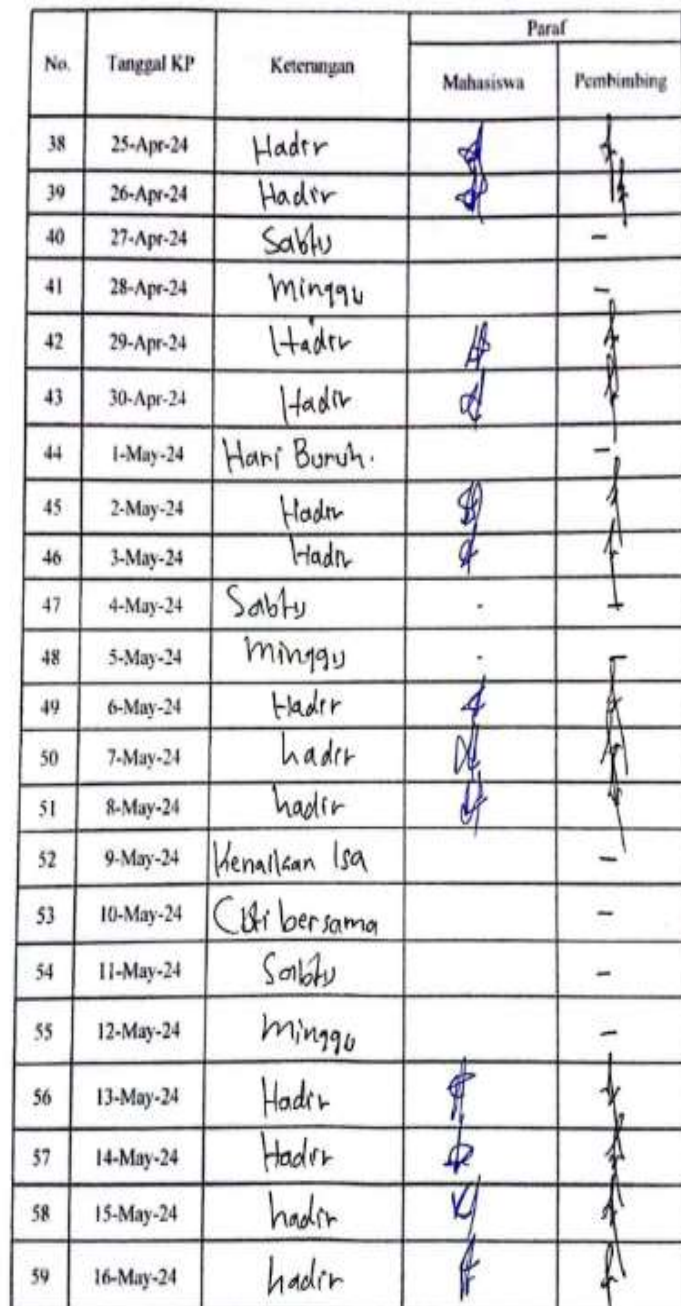 Paraf
No. Tanggal KP Keterangan Mahasiswa Pembimbing
38 25-Apr-24 Hadir
39 26-Apr-24 Hadir
40 27-Apr-24 Sabtu -
41 28-Apr-24 Minggu -
42 29-Apr-24 Hadir
43 30-Apr-24 Hadir
44 1-May-24 Hari Buruh. -
45 2-May-24 Hadir
46 3-May-24 Hadir
47 4-May-24 Sabtu - -
48 5-May-24 Minggu - -
49 6-May-24 Hadir
50 7-May-24 hadir
51 8-May-24 hadir
52 9-May-24 Kenaikan Isa -
53 10-May-24 Cuti bersama -
54 11-May-24 Sabtu -
55 12-May-24 Minggu -
56 13-May-24 Hadir
57 14-May-24 Hadir
58 15-May-24 hadir
59 16-May-24 hadir